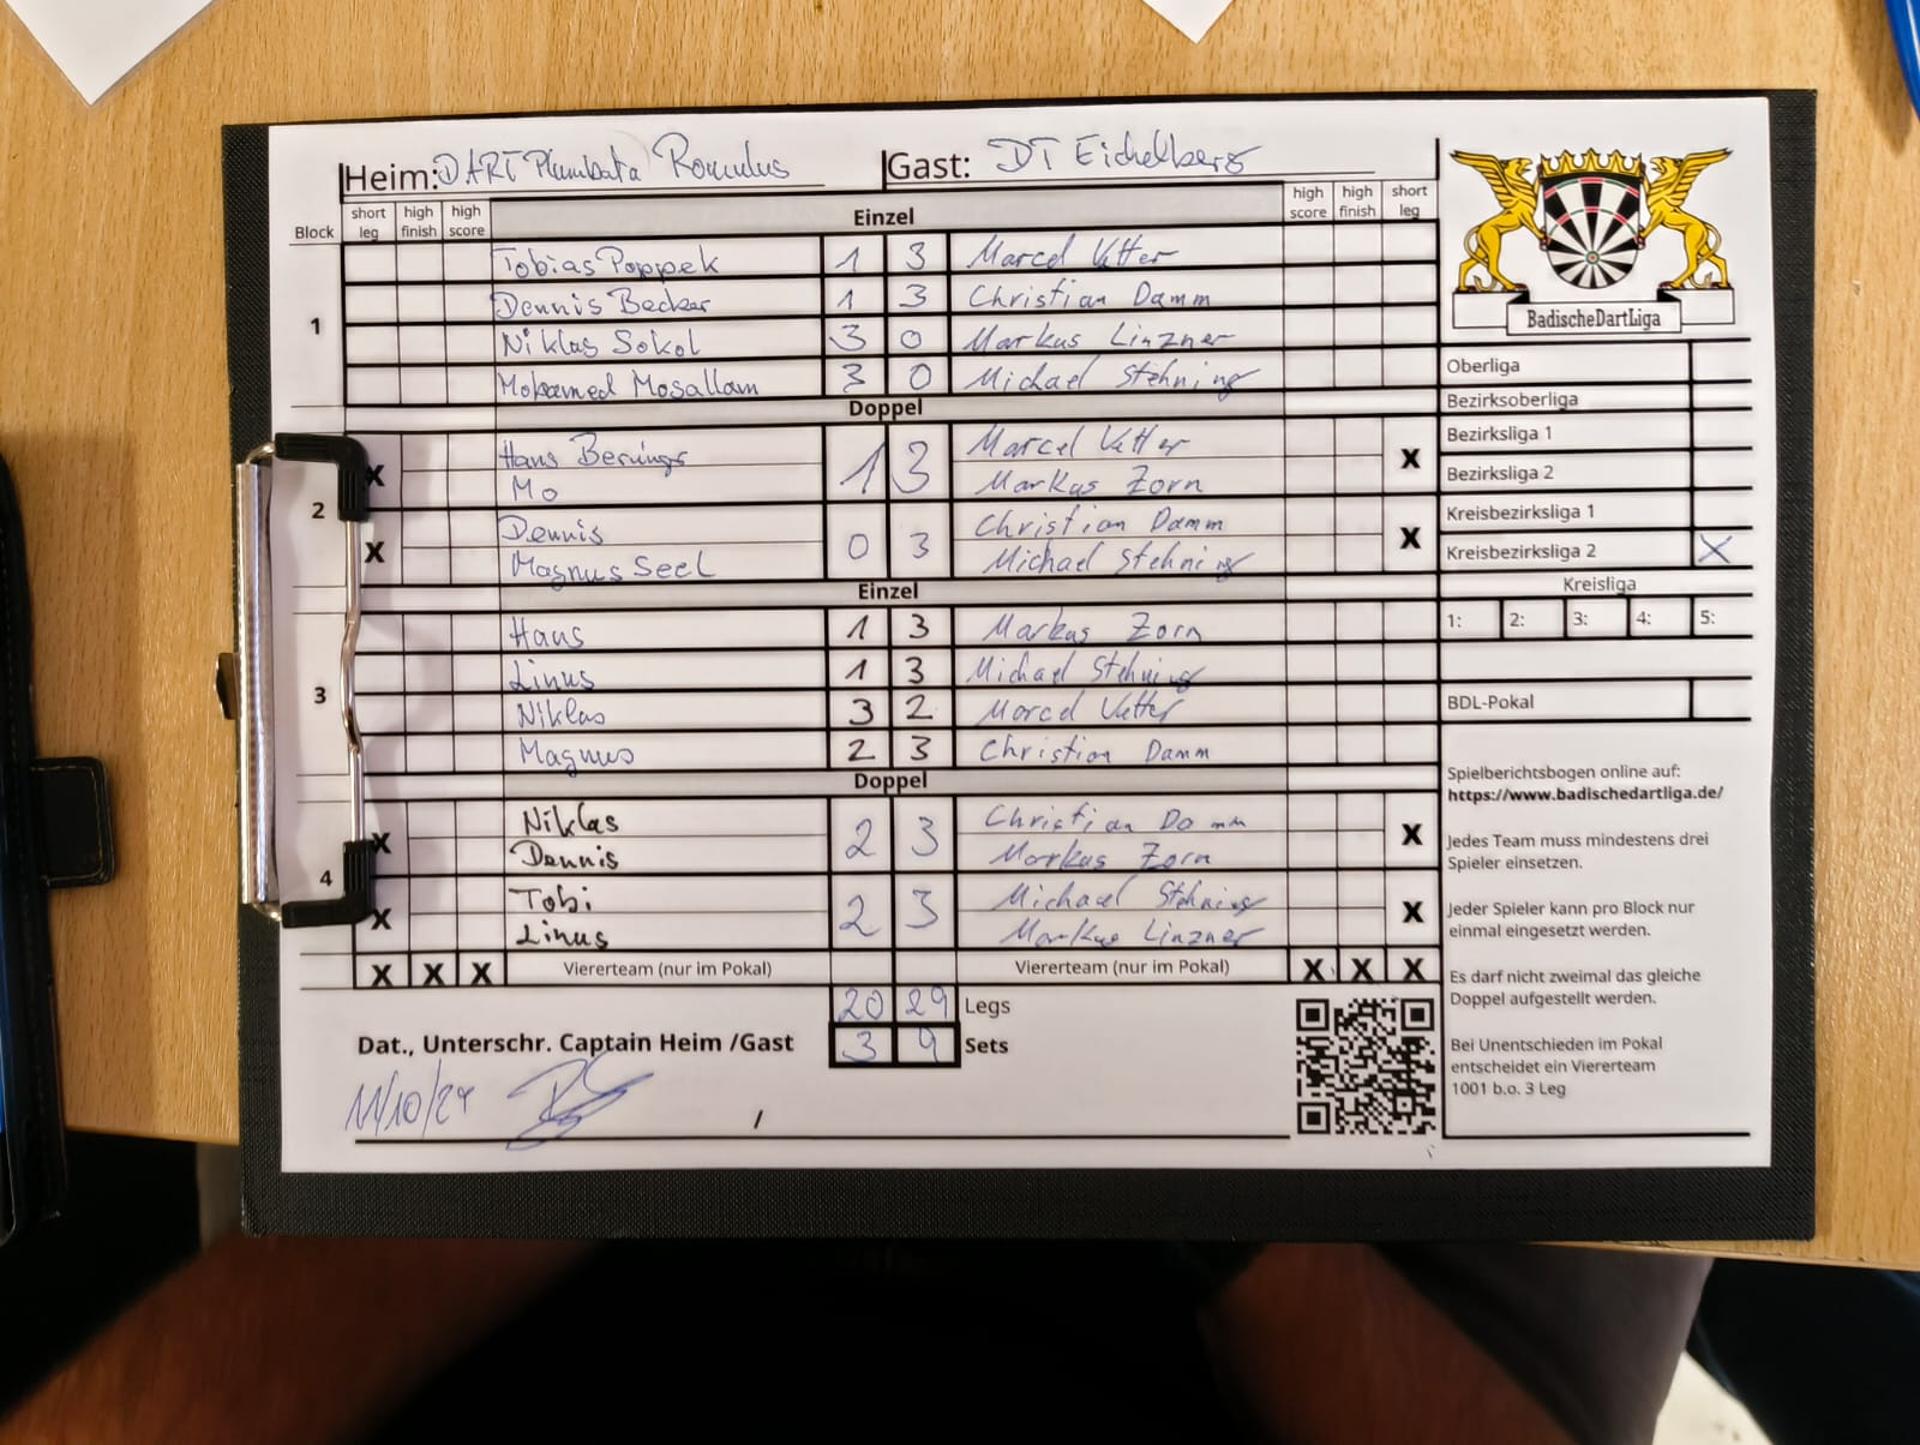 Heim: DART Plumbata Romulus Gast: DT Eichelberg
Block short leg high finish high score Einzel high score high finish short leg
1
Tobias Poppek 1 3 Marcel Vetter
Dennis Becker 1 3 Christian Damm
Niklas Sokol 3 0 Markus Linzner
Mohamed Mosallam 3 0 Michael Stehning
Doppel
2
X Hans Berings 1 3 Marcel Vetter X
Mo Markus Zorn
X Dennis 0 3 Christian Damm X
Magnus Seel Michael Stehning
Einzel
3
Hans 1 3 Markus Zorn
Linus 1 3 Michael Stehning
Niklas 3 2 Marcel Vetter
Magnus 2 3 Christian Damm
Doppel
4
X Niklas 2 3 Christian Damm X
Dennis Markus Zorn
X Tobi 2 3 Michael Stehning X
Linus Markus Linzner
X X X Viererteam (nur im Pokal) Viererteam (nur im Pokal) X X X
20 29 Legs
Dat., Unterschr. Captain Heim /Gast 3 9 Sets
11/10/24 /
BadischeDartLiga
Oberliga
Bezirksoberliga
Bezirksliga 1
Bezirksliga 2
Kreisbezirksliga 1
Kreisbezirksliga 2 X
Kreisliga
1: 2: 3: 4: 5:
BDL-Pokal
Spielberichtsbogen online auf:
https://www.badischedartliga.de/
Jedes Team muss mindestens drei
Spieler einsetzen.
Jeder Spieler kann pro Block nur
einmal eingesetzt werden.
Es darf nicht zweimal das gleiche
Doppel aufgestellt werden.
Bei Unentschieden im Pokal
entscheidet ein Viererteam
1001 b.o. 3 Leg